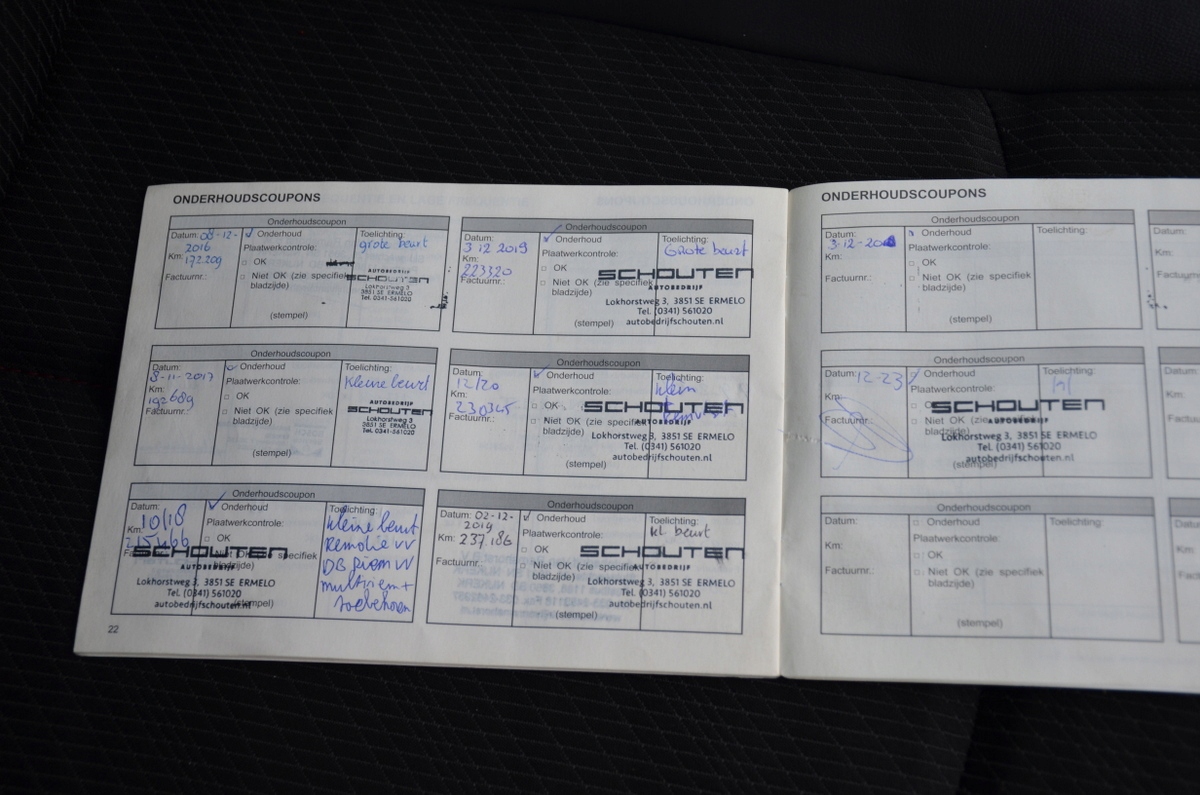 ONDERHOUDSCOUPONS
Onderhoudscoupon
Datum: 08-12-
2016
Km: 172.209
Factuurnr.:
Onderhoud
Plaatwerkcontrole:
OK
Niet OK (zie specifiek
bladzijde)
(stempel)
Toelichting:
grote beurt
AUTOBEDRIJF
SCHOUTEN
Lokhorstweg 3
3851 SE ERMELO
Tel. 0341-561020
Onderhoudscoupon
Datum:
3 12 2019
Km:
223320
Factuurnr.:
Onderhoud
Plaatwerkcontrole:
OK
Niet OK (zie specifiek
bladzijde)
(stempel)
Toelichting:
Grote beurt
SCHOUTEN
AUTOBEDRIJF
Lokhorstweg 3, 3851 SE ERMELO
Tel. (0341) 561020
autobedrijfschouten.nl
Onderhoudscoupon
Datum:
8-11-2017
Km:
192689
Factuurnr.:
Onderhoud
Plaatwerkcontrole:
OK
Niet OK (zie specifiek
bladzijde)
(stempel)
Toelichting:
Kleine beurt
AUTOBEDRIJF
SCHOUTEN
Lokhorstweg 3
3851 SE ERMELO
Tel. 0341-561020
Onderhoudscoupon
Datum:
12/20
Km:
230345
Factuurnr.:
Onderhoud
Plaatwerkcontrole:
OK
Niet OK (zie specifiek
bladzijde)
(stempel)
Toelichting:
klein
SCHOUTEN
AUTOBEDRIJF
Lokhorstweg 3, 3851 SE ERMELO
Tel. (0341) 561020
autobedrijfschouten.nl
Onderhoudscoupon
Datum:
10/18
Km:
215466
Onderhoud
Plaatwerkcontrole:
OK
Niet OK (zie specifiek
bladzijde)
(stempel)
Toelichting:
kleine beurt
Remolie vv
DB riem vv
multiriem +
toebehoren
SCHOUTEN
AUTOBEDRIJF
Lokhorstweg 3, 3851 SE ERMELO
Tel. (0341) 561020
autobedrijfschouten.nl
Onderhoudscoupon
Datum: 02-12-
Km: 237.186
Factuurnr.:
Onderhoud
Plaatwerkcontrole:
OK
Niet OK (zie specifiek
bladzijde)
(stempel)
Toelichting:
kl beurt
SCHOUTEN
AUTOBEDRIJF
Lokhorstweg 3, 3851 SE ERMELO
Tel. (0341) 561020
autobedrijfschouten.nl
22
ONDERHOUDSCOUPONS
Onderhoudscoupon
Datum:
Km:
Factuurnr.:
Onderhoud
Plaatwerkcontrole:
OK
Niet OK (zie specifiek
bladzijde)
(stempel)
Toelichting:
Datum:
Km:
Factuurnr
Onderhoudscoupon
Datum: 12-23
Km:
Factuurnr.:
Onderhoud
Plaatwerkcontrole:
Niet OK (zie specifiek
bladzijde)
(stempel)
Toelichting:
kl
SCHOUTEN
AUTOBEDRIJF
Lokhorstweg 3, 3851 SE ERMELO
Tel. (0341) 561020
autobedrijfschouten.nl
Datum:
Km:
Onderhoudscoupon
Datum:
Km:
Factuurnr.:
Onderhoud
Plaatwerkcontrole:
OK
Niet OK (zie specifiek
bladzijde)
(stempel)
Toelichting:
Datum:
Km: